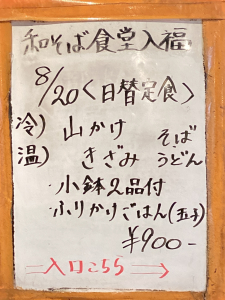 和そば食堂入福
8/20〈日替定食〉
冷) 山かけ そば
温) きざみ うどん
・小鉢2品付
・ふりかけごはん(玉子)
¥900-
入口こちら→